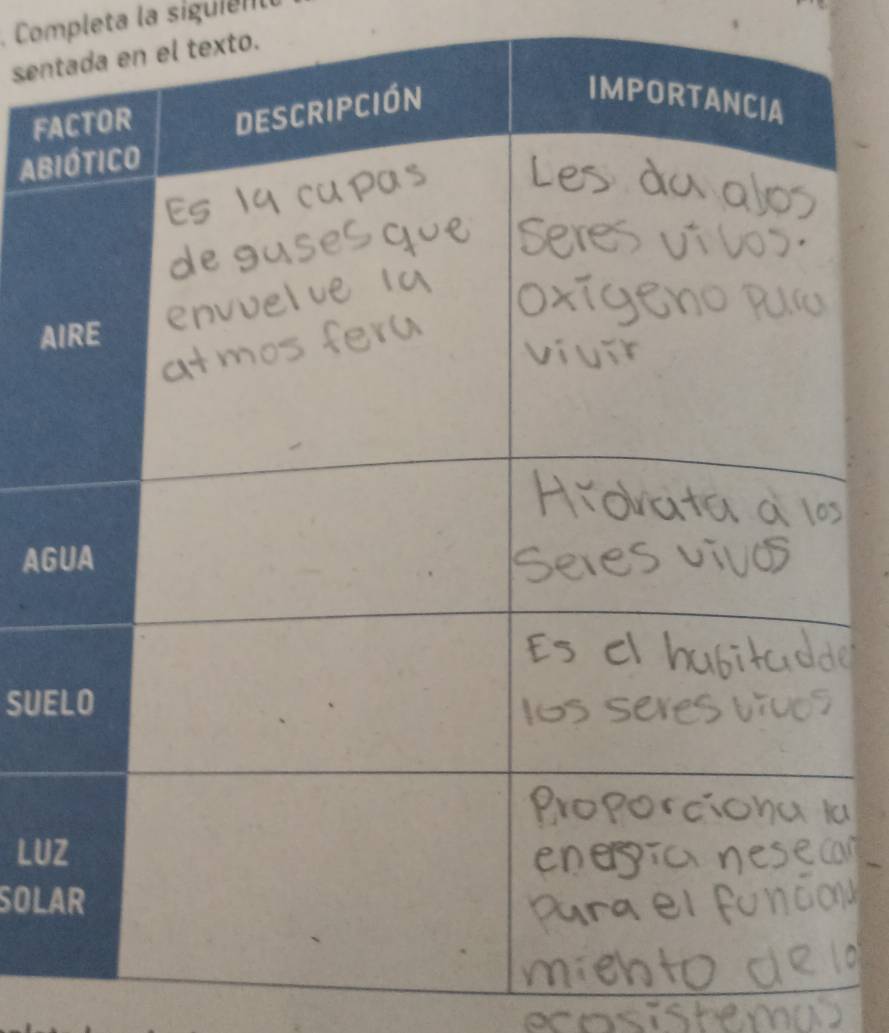 Completa la siguiente
sentada en el texto.
FACTOR ABIÓTICO
DESCRIPCIÓN
IMPORTANCIA
AIRE
Es la capas
de gases que
envuelve la
atmos fera
Les da alos
seres vivos.
oxigeno para
vivir
AGUA
Hidrata a los
seres vivos
SUELO
Es el habitadde
los seres vivos
LUZ
SOLAR
Proporciona la
energia nesecar
para el funciona
miento de lo
ecosistemas